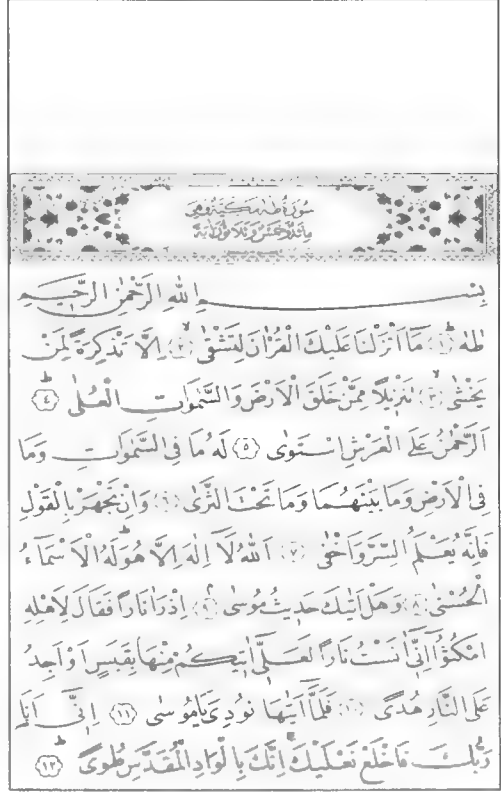 سُورَةُ طٰهٰ مَكِّيَّةٌ وَهِيَ
مِائَةٌ وَخَمْسٌ وَثَلَاثُونَ اٰيَةً
بِسْــــمِ اللّٰهِ الرَّحْمٰنِ الرَّحٖيمِ
طٰهٰ ﴿١﴾ مَٓا اَنْزَلْنَا عَلَيْكَ الْقُرْاٰنَ لِتَشْقٰىۙ ﴿٢﴾ اِلَّا تَذْكِرَةً لِمَنْ
يَخْشٰىۙ ﴿٣﴾ تَنْزٖيلًا مِمَّنْ خَلَقَ الْاَرْضَ وَالسَّمٰوَاتِ الْعُلٰىۜ ﴿٤﴾
اَلرَّحْمٰنُ عَلَى الْعَرْشِ اسْتَوٰى ﴿٥﴾ لَهُ مَا فِي السَّمٰوَاتِ وَمَا
فِي الْاَرْضِ وَمَا بَيْنَهُمَا وَمَا تَحْتَ الثَّرٰى ﴿٦﴾ وَاِنْ تَجْهَرْ بِالْقَوْلِ
فَاِنَّهُ يَعْلَمُ السِّرَّ وَاَخْفٰى ﴿٧﴾ اَللّٰهُ لَٓا اِلٰهَ اِلَّا هُوَۜ لَهُ الْاَسْمَٓاءُ
الْحُسْنٰى ﴿٨﴾ وَهَلْ اَتٰيكَ حَدٖيثُ مُوسٰىۘ ﴿٩﴾ اِذْ رَاٰ نَارًا فَقَالَ لِاَهْلِهِ
امْكُثُٓوا اِنّٖٓي اٰنَسْتُ نَارًا لَعَلّٖٓي اٰتٖيكُمْ مِنْهَا بِقَبَسٍ اَوْ اَجِدُ
عَلَى النَّارِ هُدًى ﴿١٠﴾ فَلَمَّٓا اَتٰيهَا نُودِيَ يَا مُوسٰى ﴿١١﴾ اِنّٖٓي اَنَا۬
رَبُّكَ فَاخْلَعْ نَعْلَيْكَۚ اِنَّكَ بِالْوَادِ الْمُقَدَّسِ طُوًىۜ ﴿١٢﴾